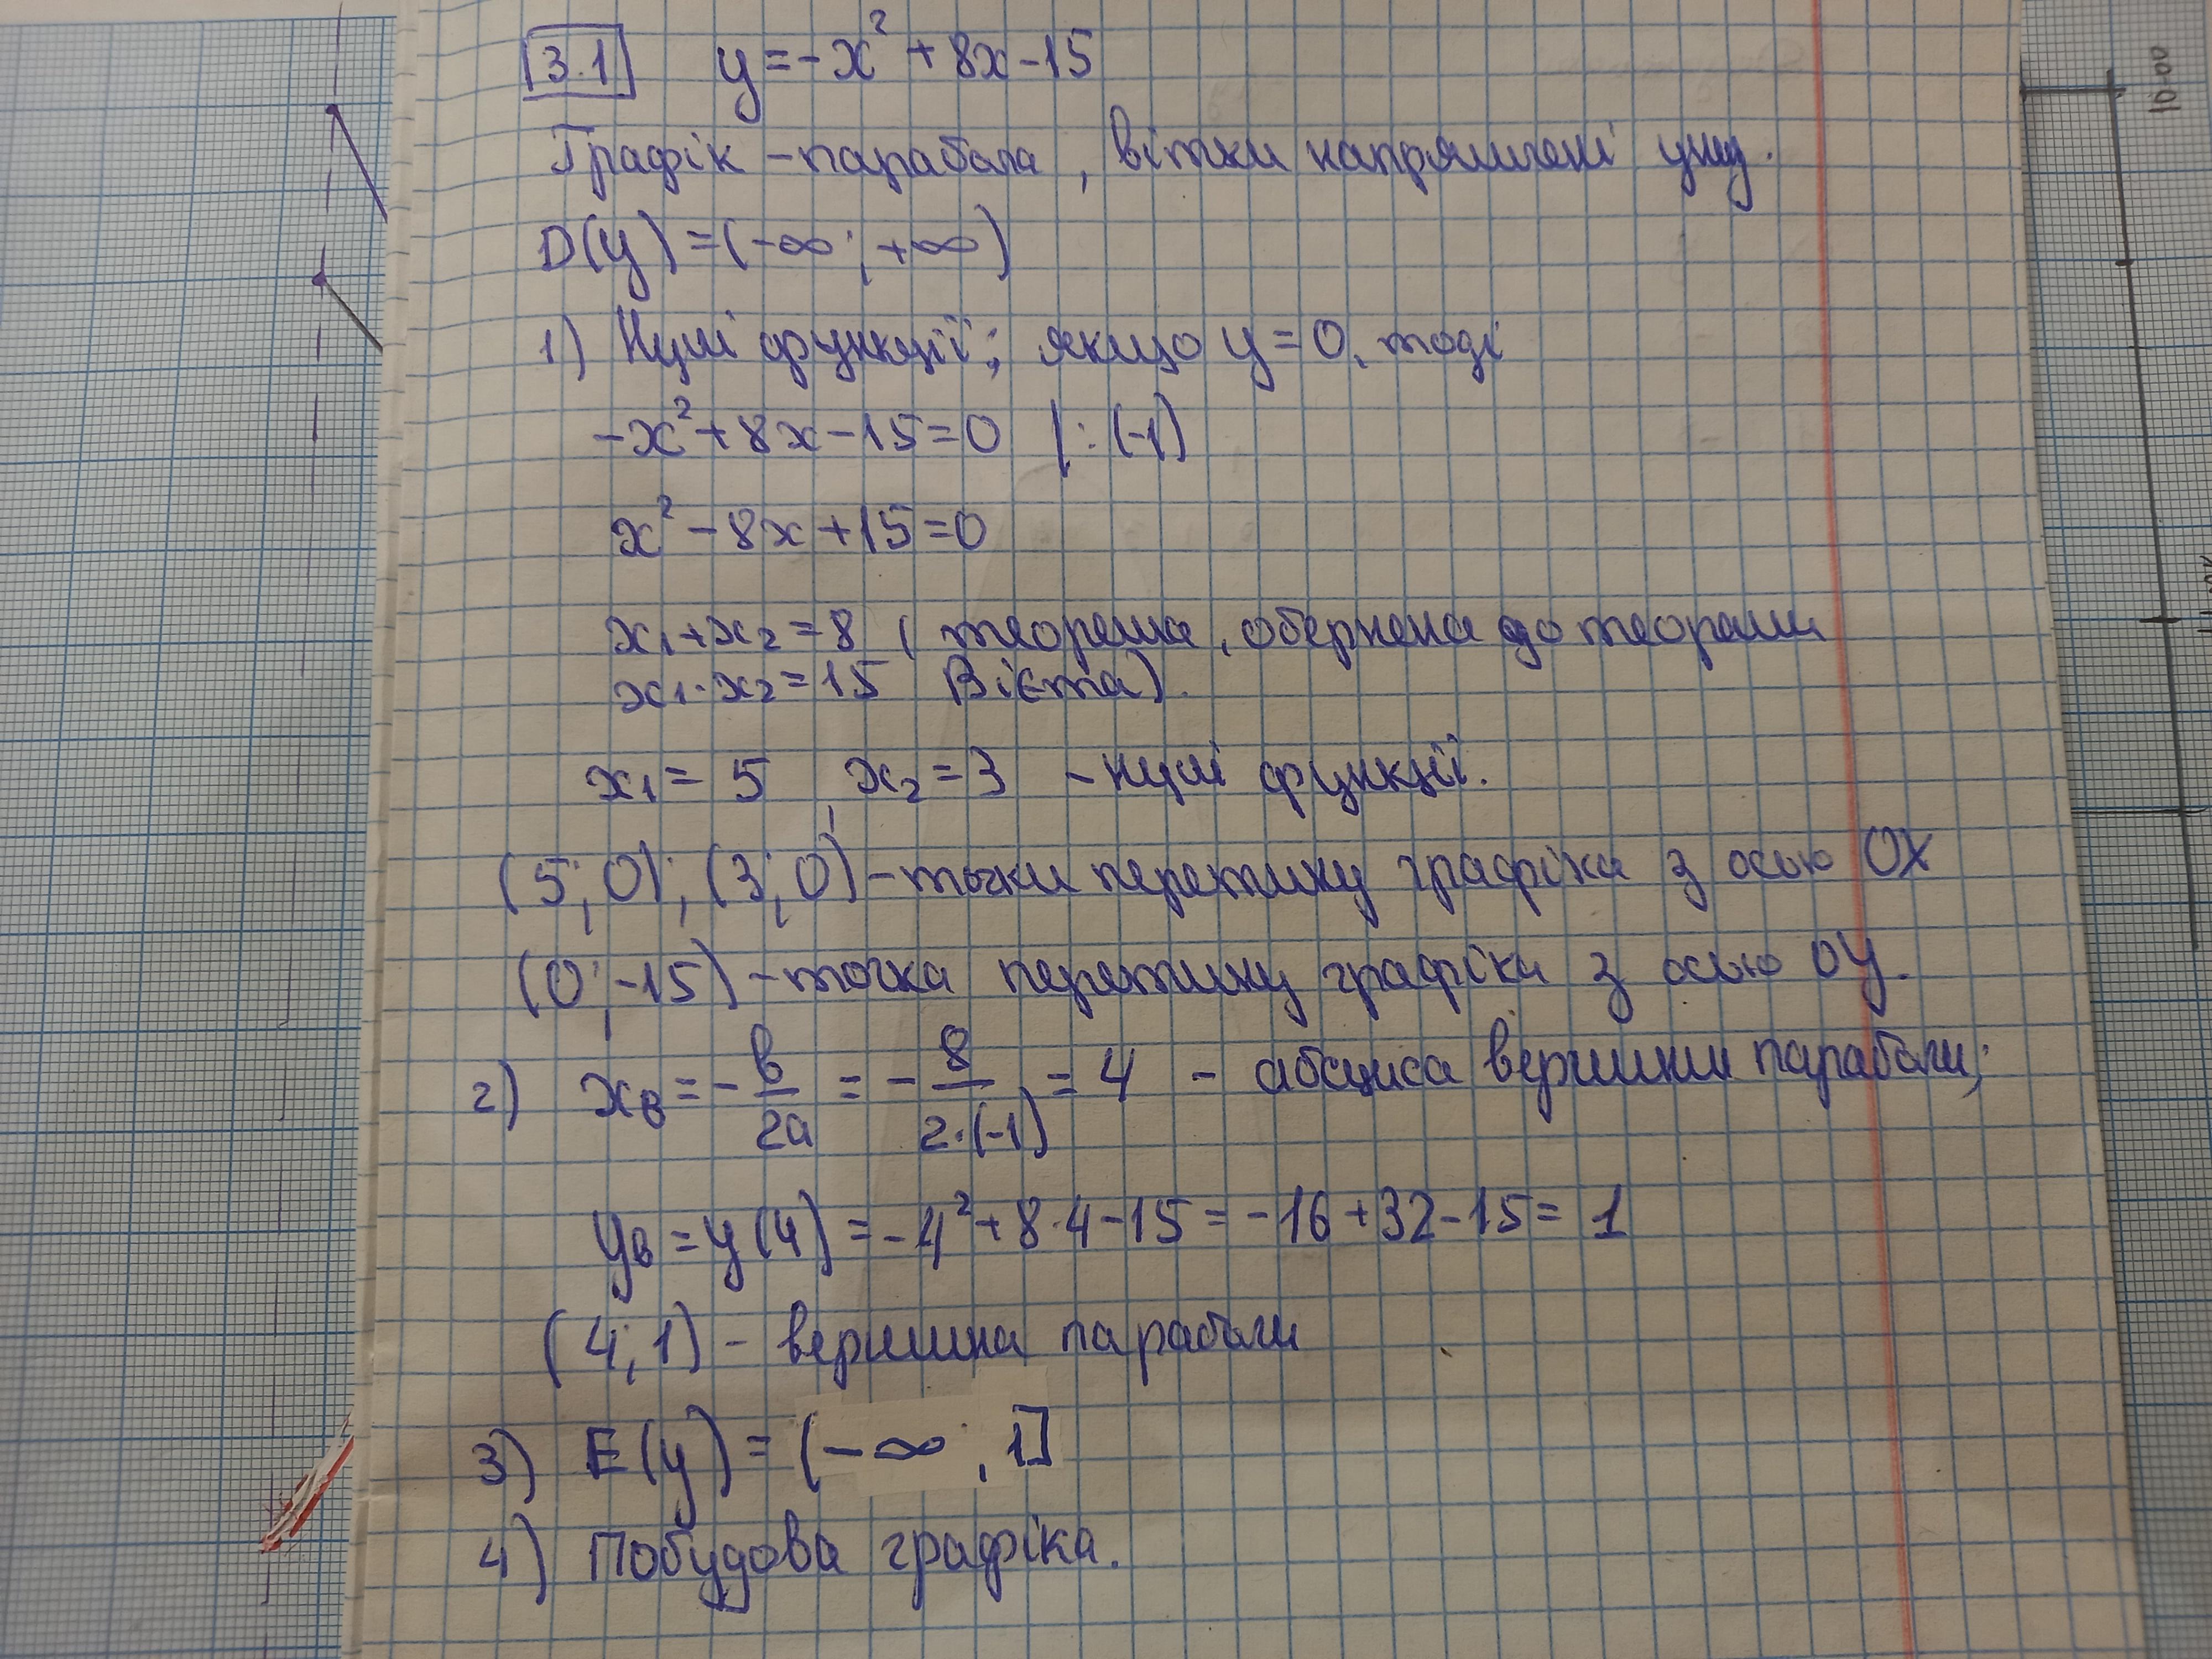 3.1 y=-x²+8x-15
Графік - парабола, вітки напрямлені униз.
D(y)=(-∞;+∞)
1) Нулі функції; якщо y=0, тоді
-x²+8x-15=0 |:(-1)
x²-8x+15=0
x₁+x₂=8 (теорема, обернена до теореми
x₁·x₂=15 Вієта).
x₁=5, x₂=3 - нулі функції.
(5;0); (3;0) - точки перетину графіка з осью OX
(0;-15) - точка перетину графіка з осью OY.
2) xв = -в/2a = -8/2·(-1) = 4 - абсциса вершини параболи;
yв=y(4)=-4²+8·4-15=-16+32-15=1
(4;1) - вершина параболи
3) E(y)=(-∞;1]
4) Побудова графіка.
1000